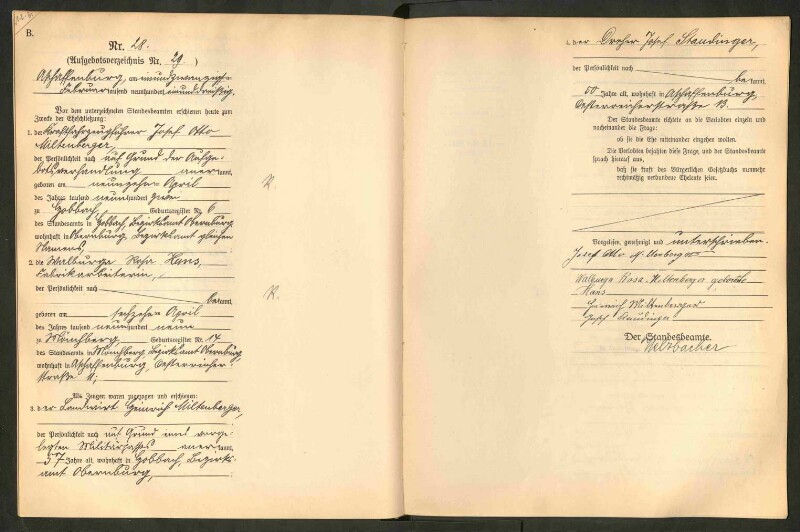 B.
Nr. 28.
(Aufgebotsverzeichnis Nr. 29.)
Aschaffenburg, am einundzwanzigsten
Februar tausend neunhundert einunddreißig.
Vor dem unterzeichneten Standesbeamten erschienen heute zum
Zwecke der Eheschließung:
1. der Kraftfahrzeugführer Josef Otto
Miltenberger,
der Persönlichkeit nach auf Grund der Aufge-
botsverhandlung anerkannt,
geboren am neunzehnten April
des Jahres tausend neunhundert
zu Hobbach, Geburtsregister Nr. 6
des Standesamts in Hobbach, Bezirksamt Obernburg
wohnhaft in Obernburg, Bezirksamt gleichen
Namens,
2. die Walburga Rosa Hans,
Fabrikarbeiterin,
der Persönlichkeit nach
bekannt,
geboren am sechzehnten April
des Jahres tausend neunhundert neun
zu Mönchberg, Geburtsregister Nr. 17
des Standesamts in Mönchberg, Bezirksamt Obernburg,
wohnhaft in Aschaffenburg, Oesterreicher-
straße 11;
Als Zeugen waren zugezogen und erschienen:
3. der Landwirt Heinrich Miltenberger,
der Persönlichkeit nach auf Grund eines vorge-
legten Militärpasses anerkannt,
57 Jahre alt, wohnhaft in Hobbach, Bezirks-
amt Obernburg,
4. der Dreher Josef Staudinger,
der Persönlichkeit nach
bekannt,
50 Jahre alt, wohnhaft in Aschaffenburg,
Oesterreicherstraße 13.
Der Standesbeamte richtete an die Verlobten einzeln und
nacheinander die Frage:
ob sie die Ehe miteinander eingehen wollen.
Die Verlobten bejahten diese Frage, und der Standesbeamte
sprach hierauf aus,
daß sie kraft des Bürgerlichen Gesetzbuchs nunmehr
rechtmäßig verbundene Eheleute seien.
Vorgelesen, genehmigt und unterschrieben.
Josef Otto Miltenberger
Walburga Rosa Miltenberger geborene
Hans
Heinrich Miltenberger
Josef Staudinger
Der Standesbeamte.
Welzbacher